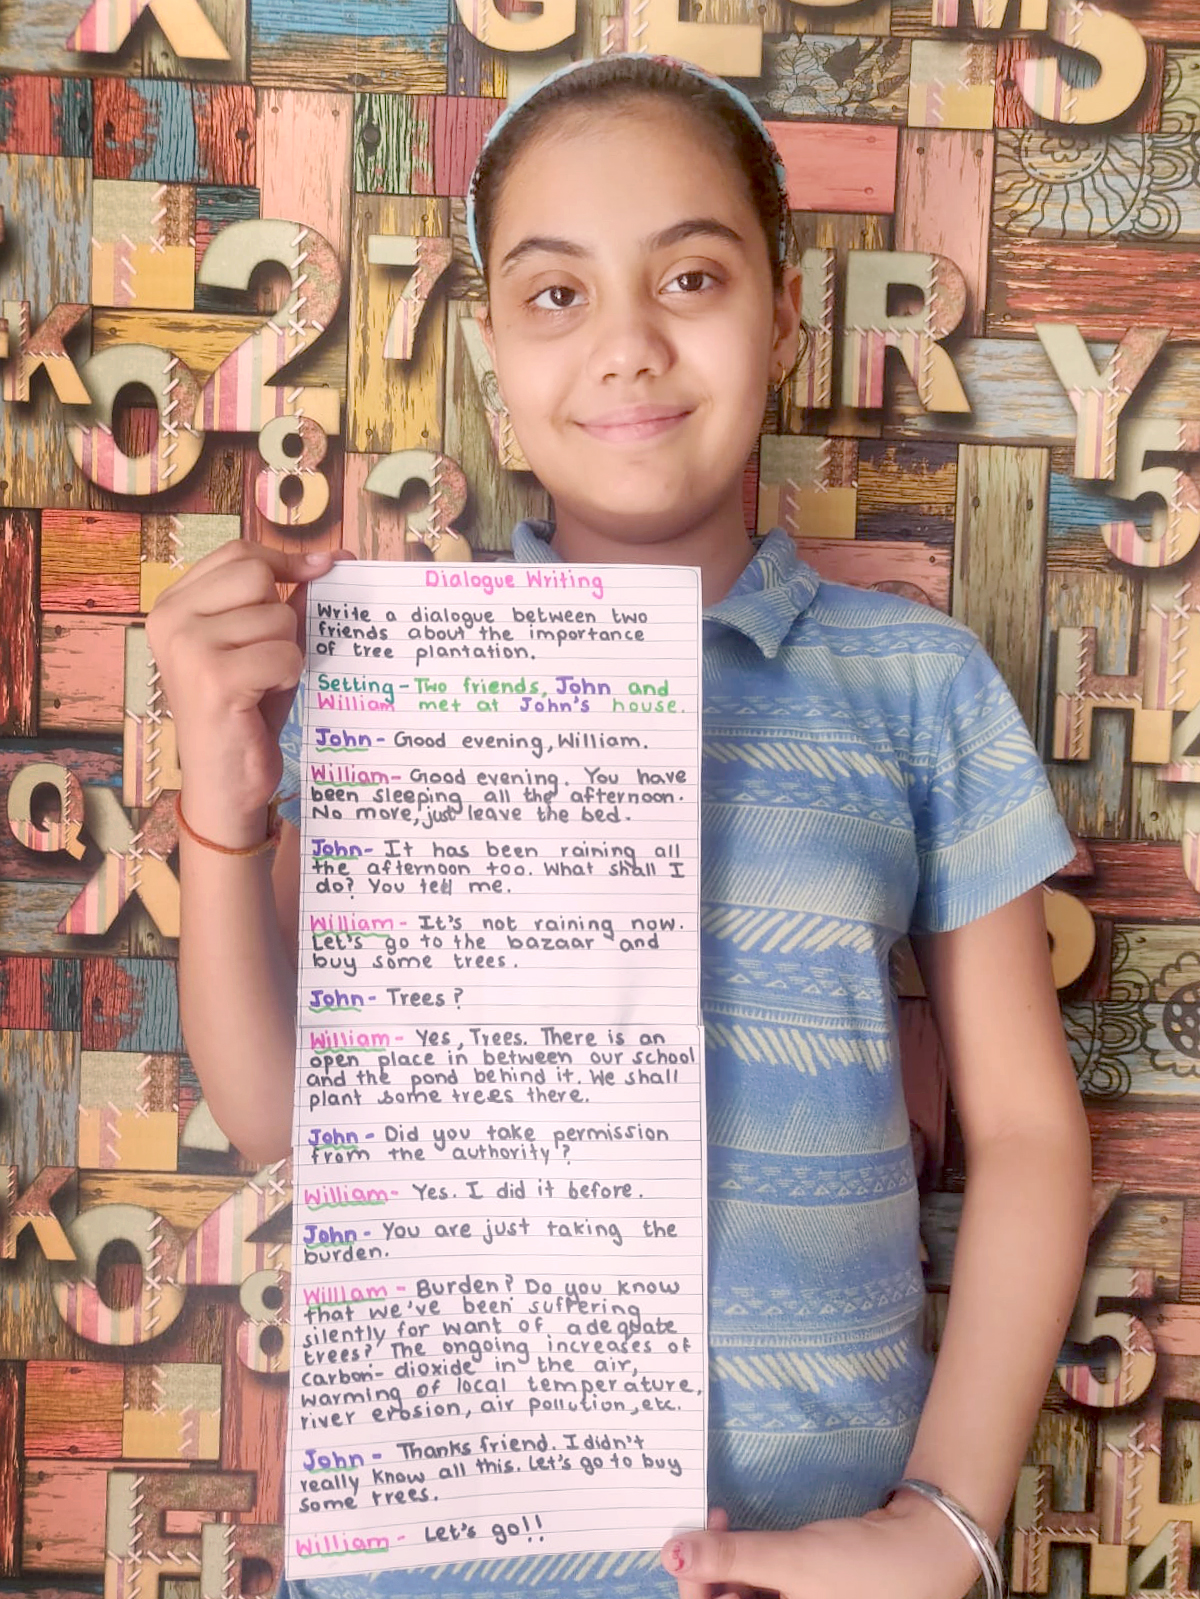 Dialogue Writing
Write a dialogue between two
friends about the importance
of tree plantation.
Setting - Two friends, John and
William met at John's house.
John - Good evening, William.
William - Good evening. You have
been sleeping all the afternoon.
No more, just leave the bed.
John - It has been raining all
the afternoon too. What shall I
do? You tell me.
William - It's not raining now.
Let's go to the bazaar and
buy some trees.
John - Trees?
William - Yes, Trees. There is an
open place in between our school
and the pond behind it. We shall
plant some trees there.
John - Did you take permission
from the authority?
William - Yes. I did it before.
John - You are just taking the
burden.
William - Burden? Do you know
that we've been suffering
silently for want of adequate
trees? The ongoing increases of
carbon-dioxide in the air,
warming of local temperature,
river erosion, air pollution, etc.
John - Thanks friend. I didn't
really know all this. Let's go to buy
some trees.
William - Let's go!!